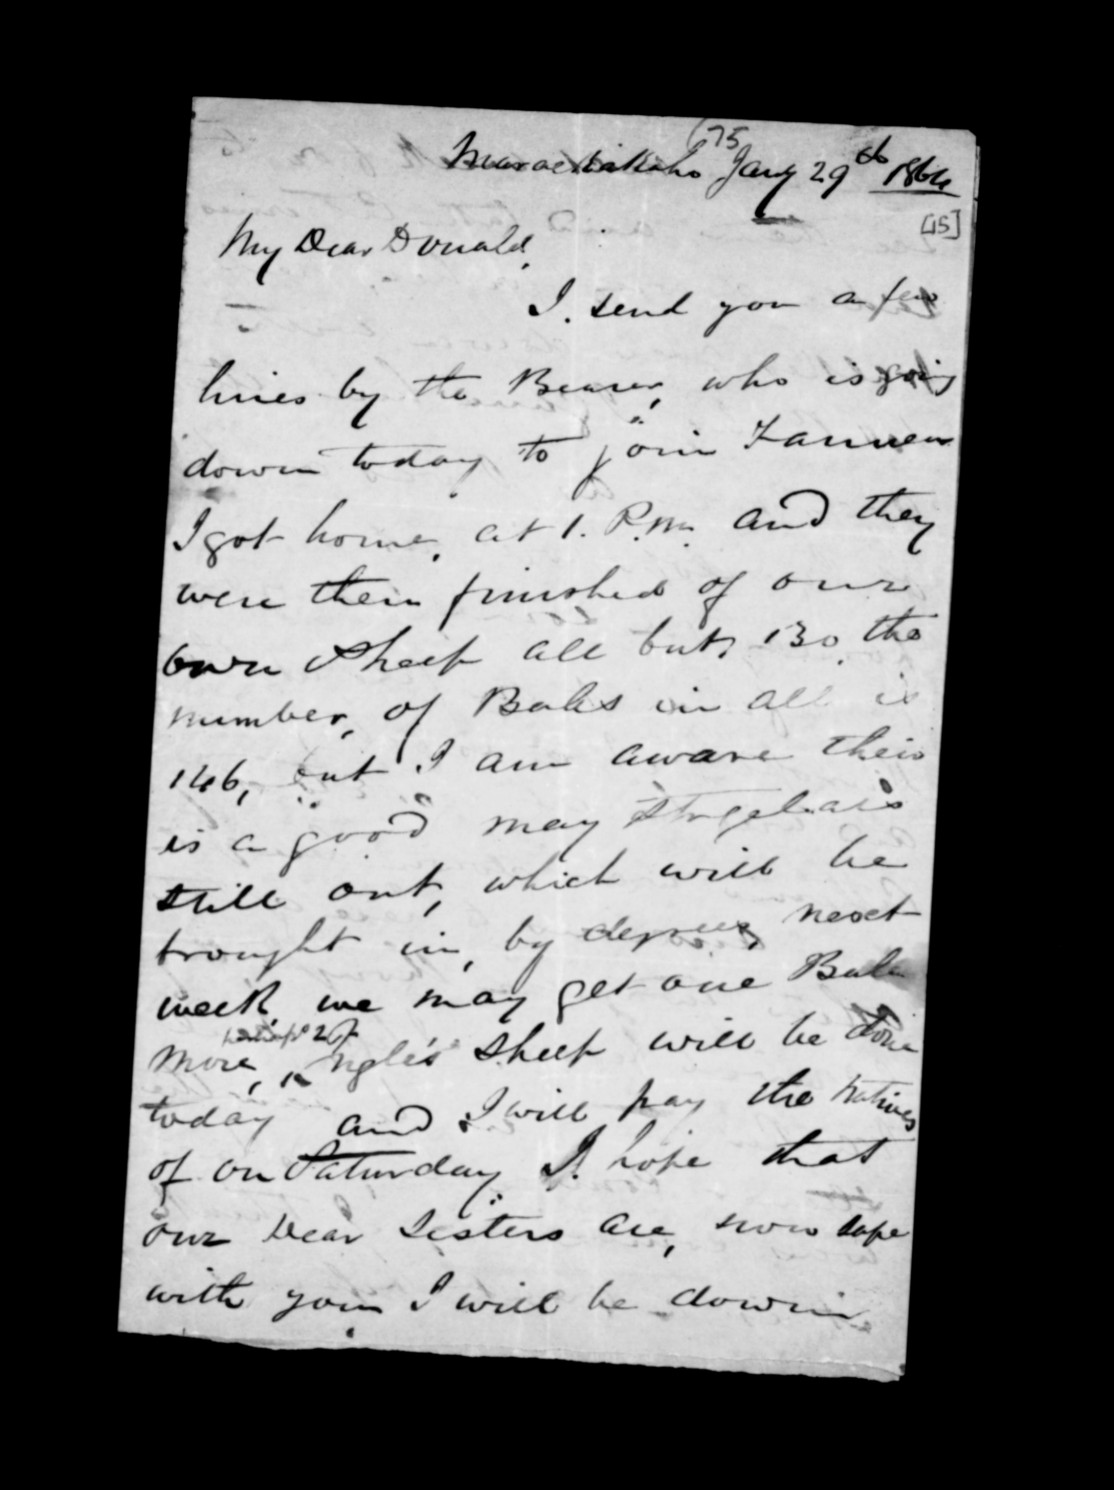 (75
Maraekakaho Jany 29th 1864
[15]
My Dear Donald,
I. send you a few
lines by the Bearer, who is going
down today to join Fannen
I got home, at 1. P.M. and they
were then finished of our
own sheep all but, 130, the
number, of Bales in all is
146, but I am aware their
is a good may
still out, which will be
brought in, by degrees, next
week we may get one Bale
perhaps 2 of
more, ngle's sheep will be done
today and I will pay the Natives
of on Saturday I. hope that
our Dear Sisters are, now safe
with you I will be down